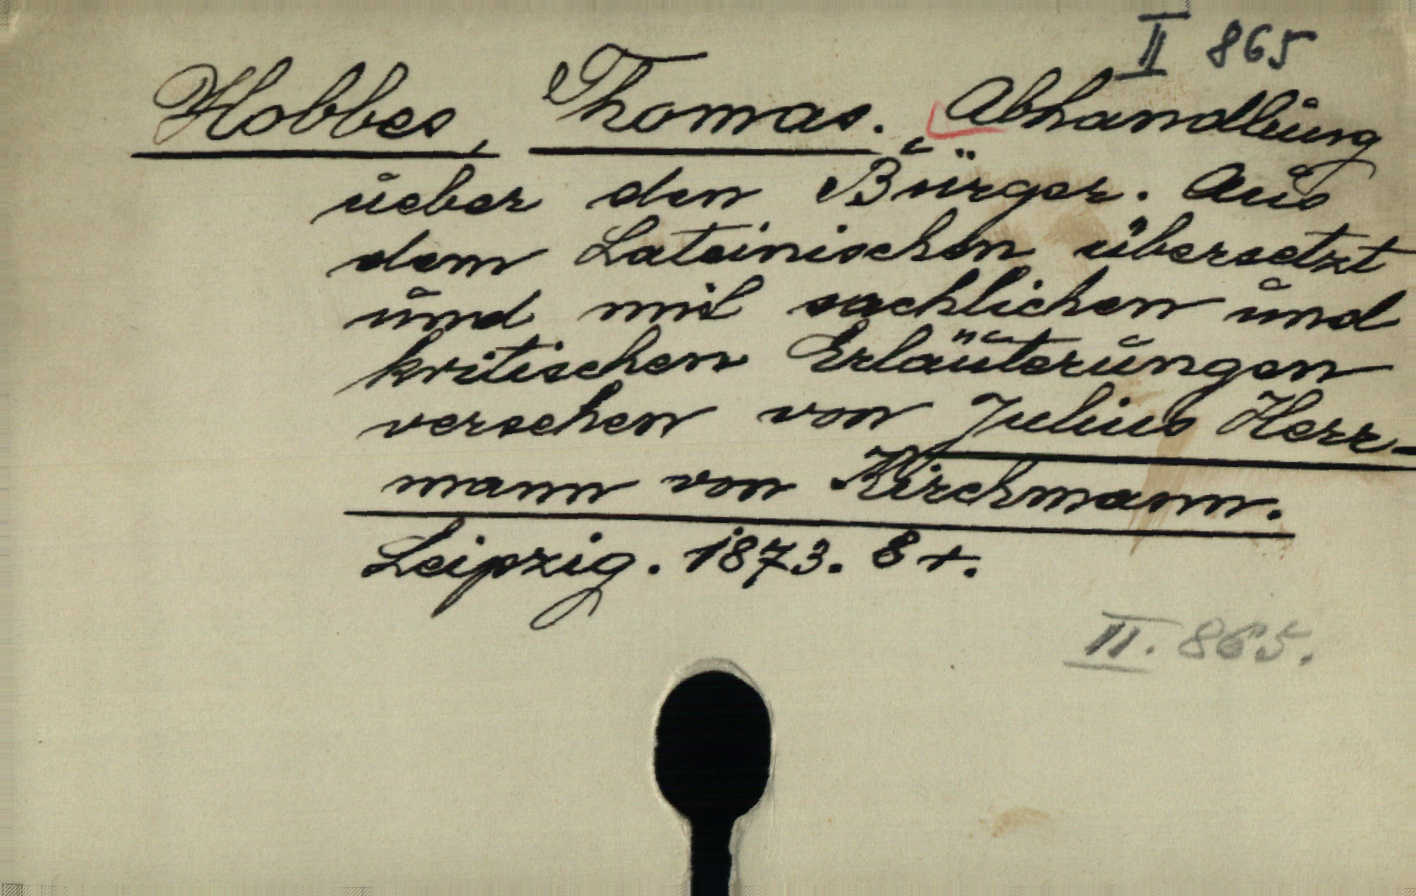 II 865
Hobbes, Thomas. Abhandlung
ueber den Bürger. Aus
dem Lateinischen übersetzt
und mit sachlichen und
kritischen Erläuterungen
versehen von Julius Herr-
mann von Kirchmann.
Leipzig. 1873. 8+.
II. 865.